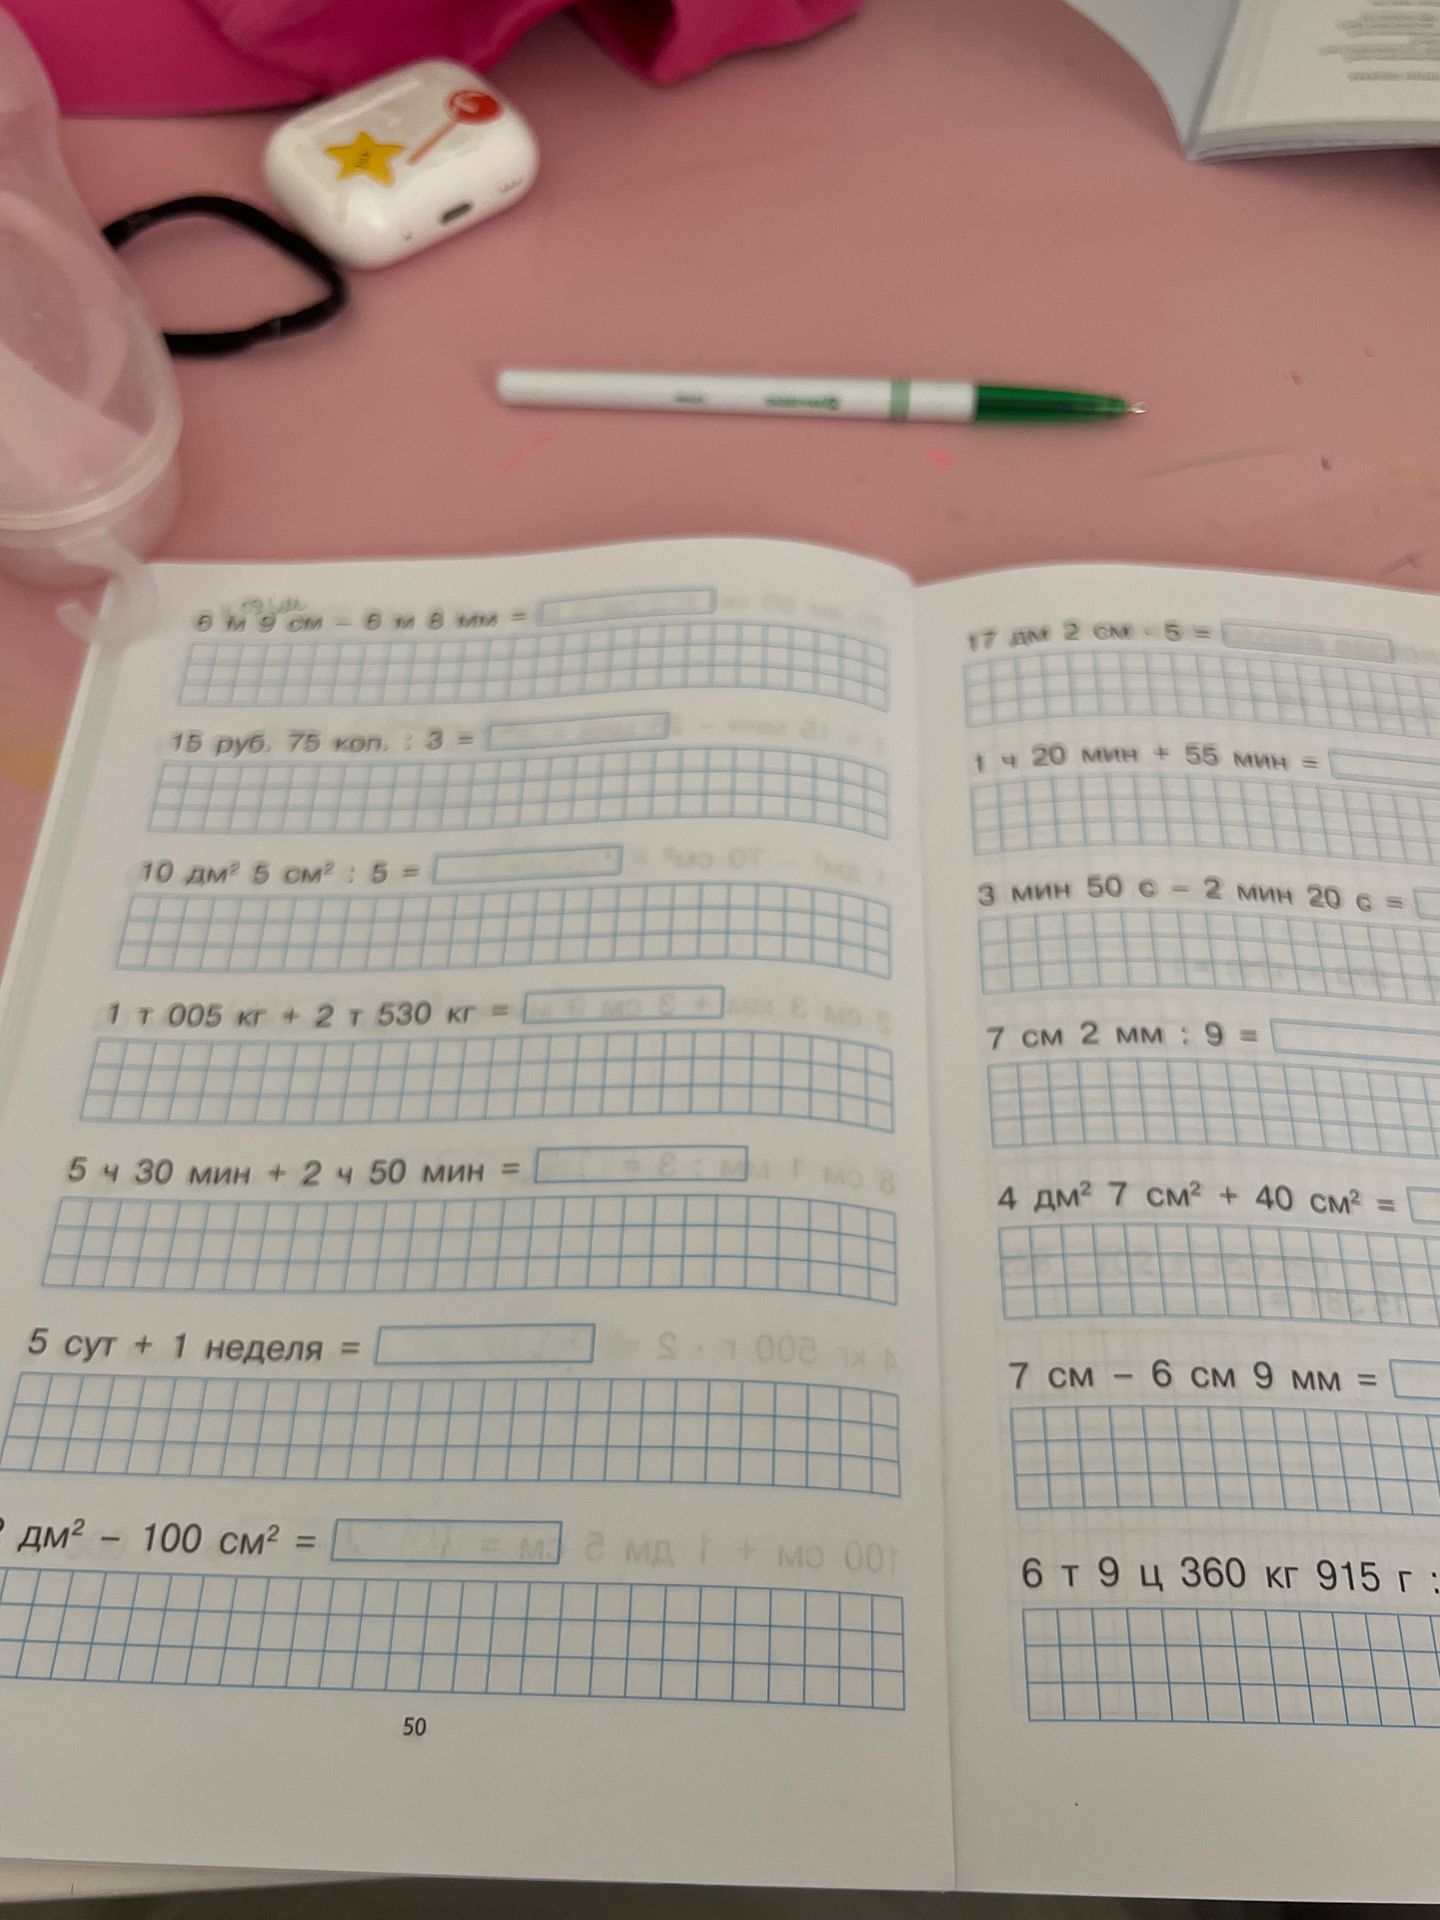 6 м 9 см – 6 м 8 мм =
15 руб. 75 коп. : 3 =
10 дм² 5 см² : 5 =
1 т 005 кг + 2 т 530 кг =
5 ч 30 мин + 2 ч 50 мин =
5 сут + 1 неделя =
дм² – 100 см² =
50
17 дм 2 см · 5 =
1 ч 20 мин + 55 мин =
3 мин 50 с – 2 мин 20 с =
7 см 2 мм : 9 =
4 дм² 7 см² + 40 см² =
7 см – 6 см 9 мм =
6 т 9 ц 360 кг 915 г :